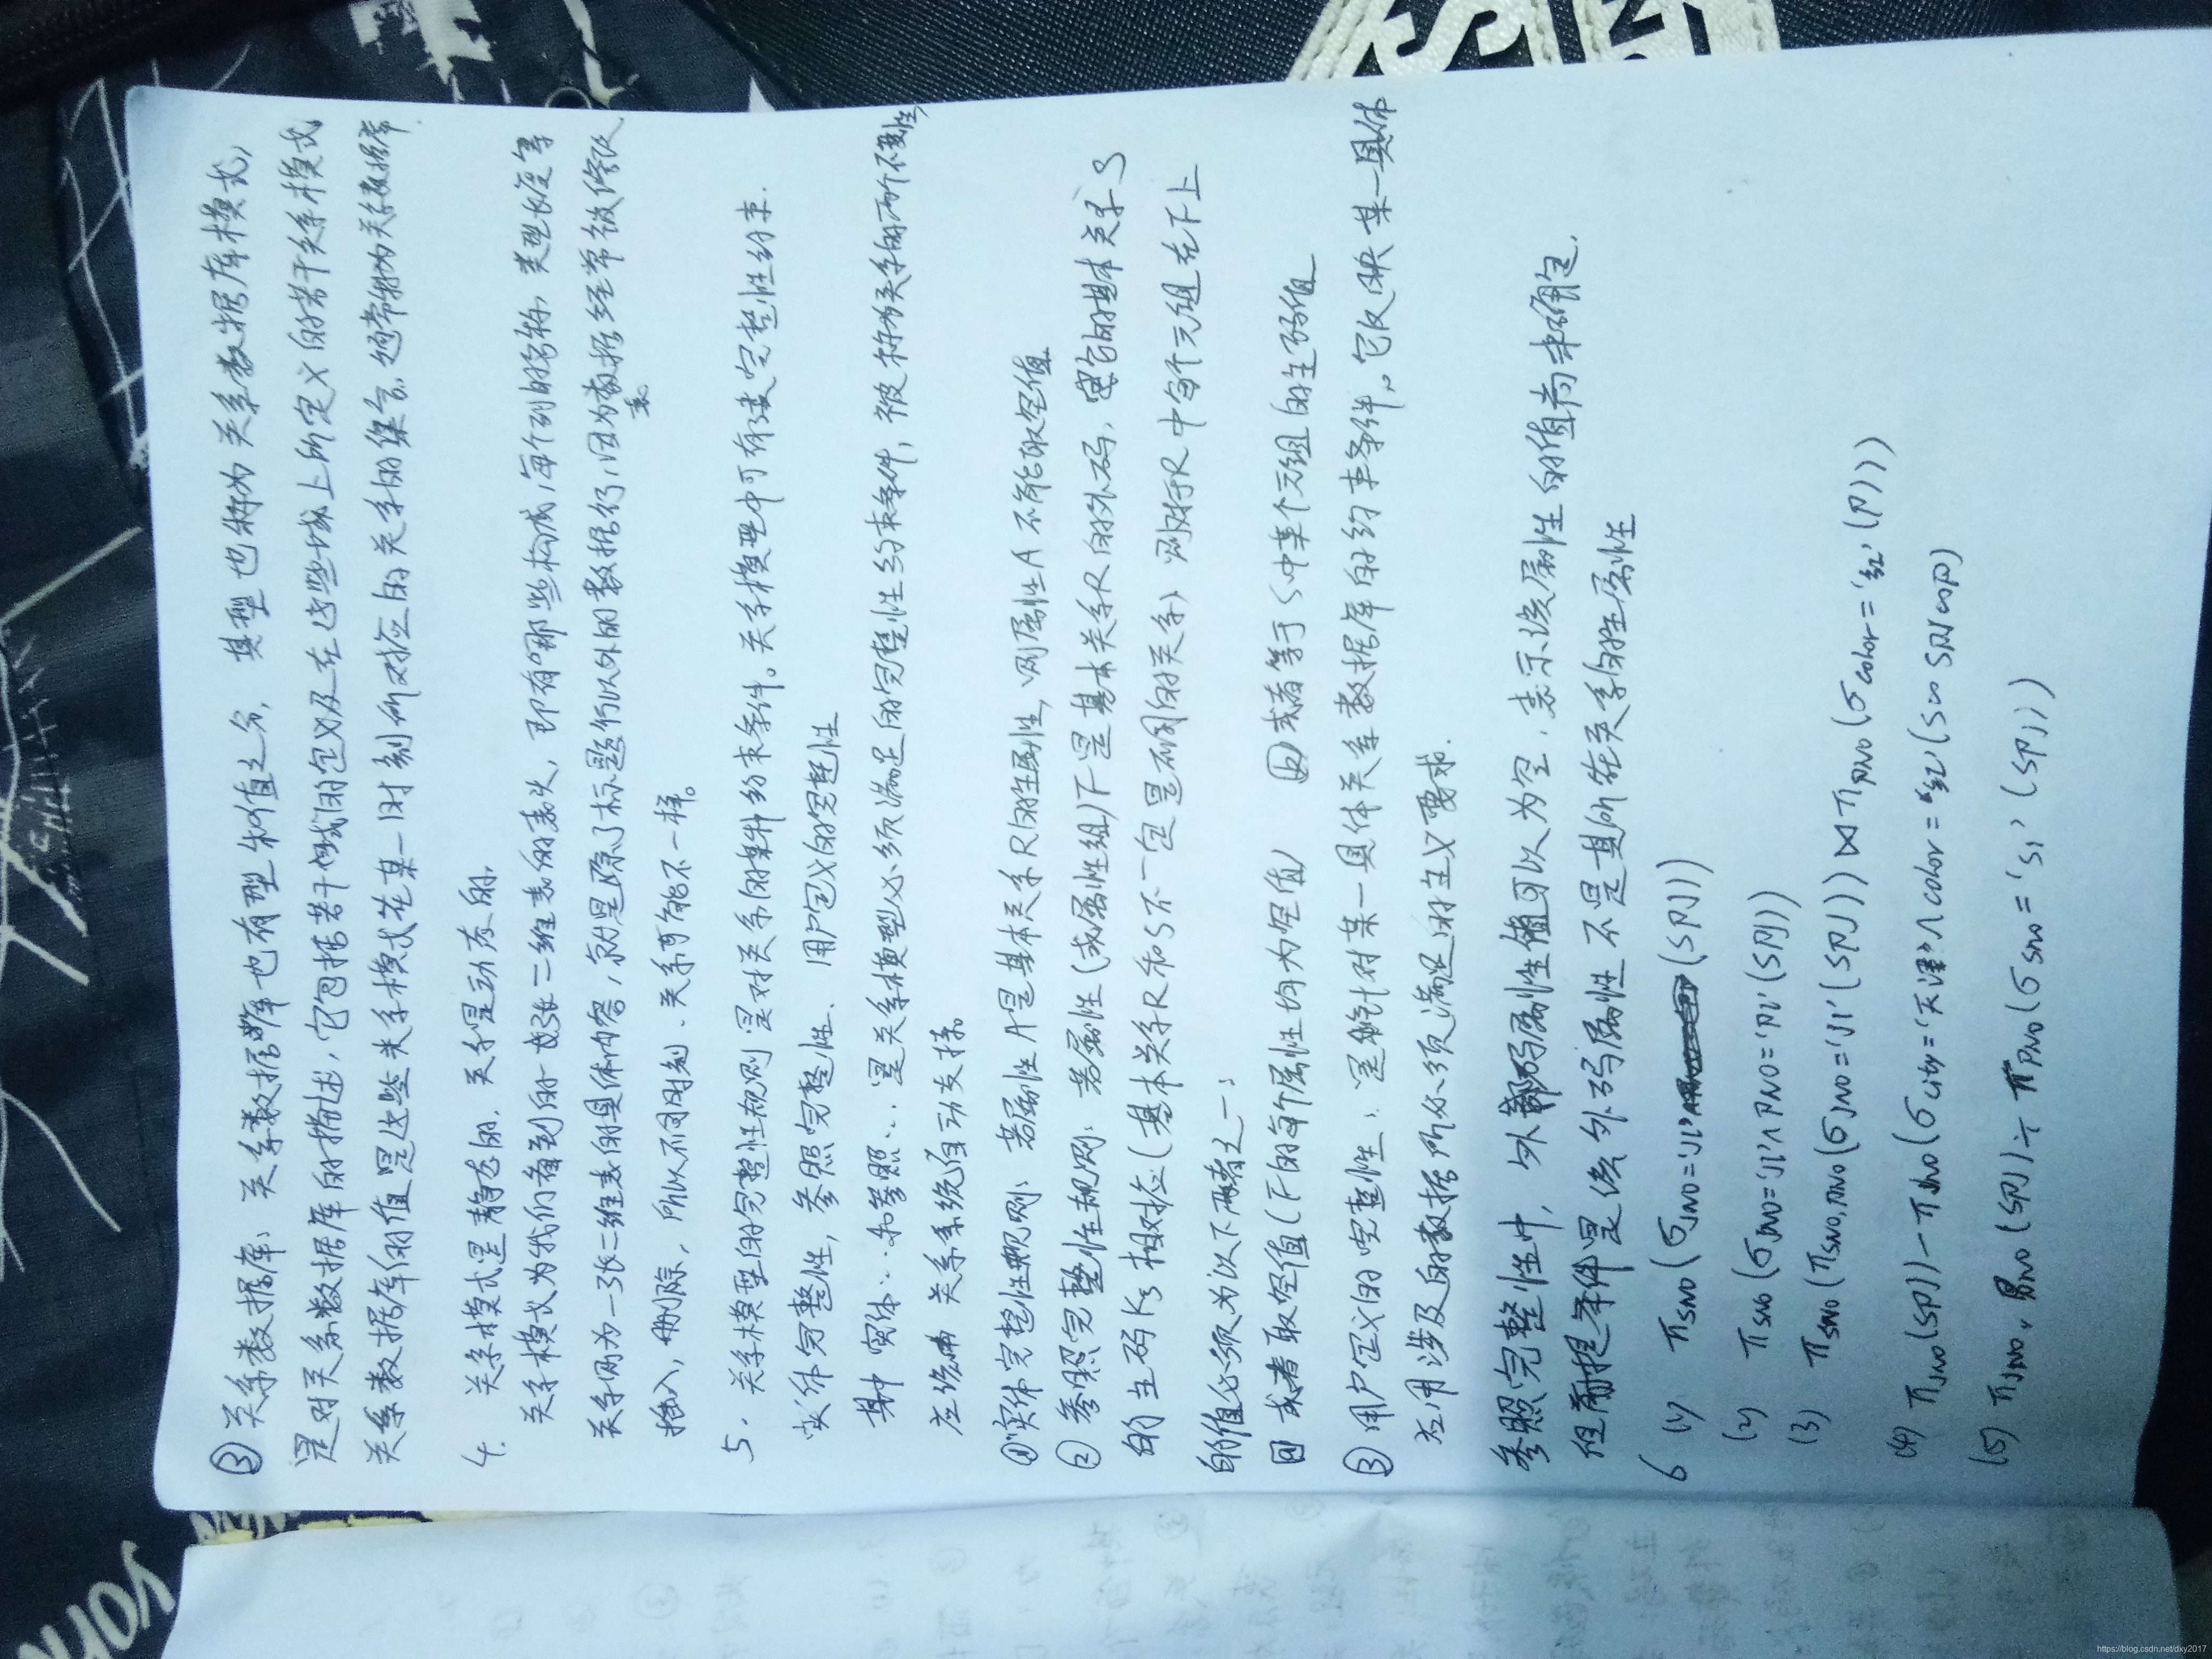 ③ 关系数据库：关系数据库也有型和值之分，其型也称为关系数据库模式，
是对关系数据库的描述，它包括若干域的定义及在这些域上所定义的若干关系模式
关系数据库的值是这些关系模式在某一时刻所对应的关系的集合，通常称为关系数据库
4. 关系模式是静态的，关系是动态的，
关系模式为我们看到的一张二维表的表头，即有哪些构成，每个列的名称，类型长度等
关系则为一张二维表的具体内容，就是除了标题行以外的数据行，因为表数据经常被修改
插入，删除，所以不同时刻，关系可能不一样。
5. 关系模型的完整性规则是对关系的某种约束条件。关系模型中可有3类完整性约束．
实体完整性，参照完整性．用户定义的完整性
其中实体…和参照…是关系模型必须满足的完整性约束条件，被称为关系的两个不变性，
应由关系系统自动支持。
① 实体完整性规则：若属性A是基本关系R的主属性，则属性A不能取空值
② 参照完整性规则：若属性（或属性组）F是基本关系R的外码，它与基本关系S
的主码Ks相对应（基本关系R和S不一定是不同的关系）则对于R中每个元组在F上
的值必须为以下两者之一：
或者取空值（F的每个属性均为空值） 或者等于S中某个元组的主码值
③ 用户定义的完整性：是针对某一具体关系数据库的约束条件。它反映某一具体
应用涉及的数据所必须满足的语义要求．
参照完整性中，外码属性值可以为空，表示该属性的值尚未确定，
但前提条件是该外码属性不是其所在关系的主属性
6 (1) πSNO(σJNO='J1'(SPJ))
(2) πSNO(σJNO='J1'∧PNO='P1'(SPJ))
(3) πSNO(πSNO,PNO(σJNO='J1'(SPJ))⋈πPNO(σCOLOR='红'(P)))
(4) πJNO(SPJ)-πJNO(σCITY='天津'∧COLOR='红'(S∞SPJ∞P)
(5) πJNO,PNO(SPJ)÷πPNO(σSNO='S1'(SPJ))
https://blog.csdn.net/dxy2017